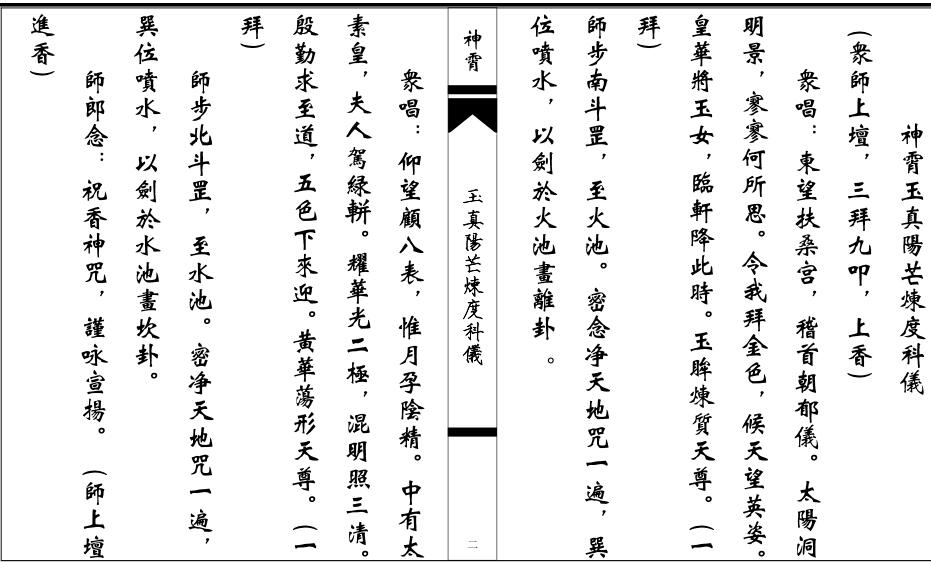 神霄玉真陽芒煉度科儀
(衆師上壇，三拜九叩，上香)
衆唱：東望扶桑宮，稽首朝郁儀。太陽洞
明景，寥寥何所思。令我拜金色，候天望英姿。
皇華將玉女，臨軒降此時。玉眸煉質天尊。(一
拜)
師步南斗罡，至火池。密念净天地咒一遍，巽
位噴水，以劍於火池畫離卦。
神霄
玉真陽芒煉度科儀
二
衆唱：仰望顧八表，惟月孕陰精。中有太
素皇，夫人駕緑軿。耀華光二極，混明照三清。
殷勤求至道，五色下來迎。黄華蕩形天尊。(一
拜)
師步北斗罡，至水池。密净天地咒一遍，
巽位噴水，以劍於水池畫坎卦。
師郎念：祝香神咒，謹咏宣揚。(師上壇
進香)